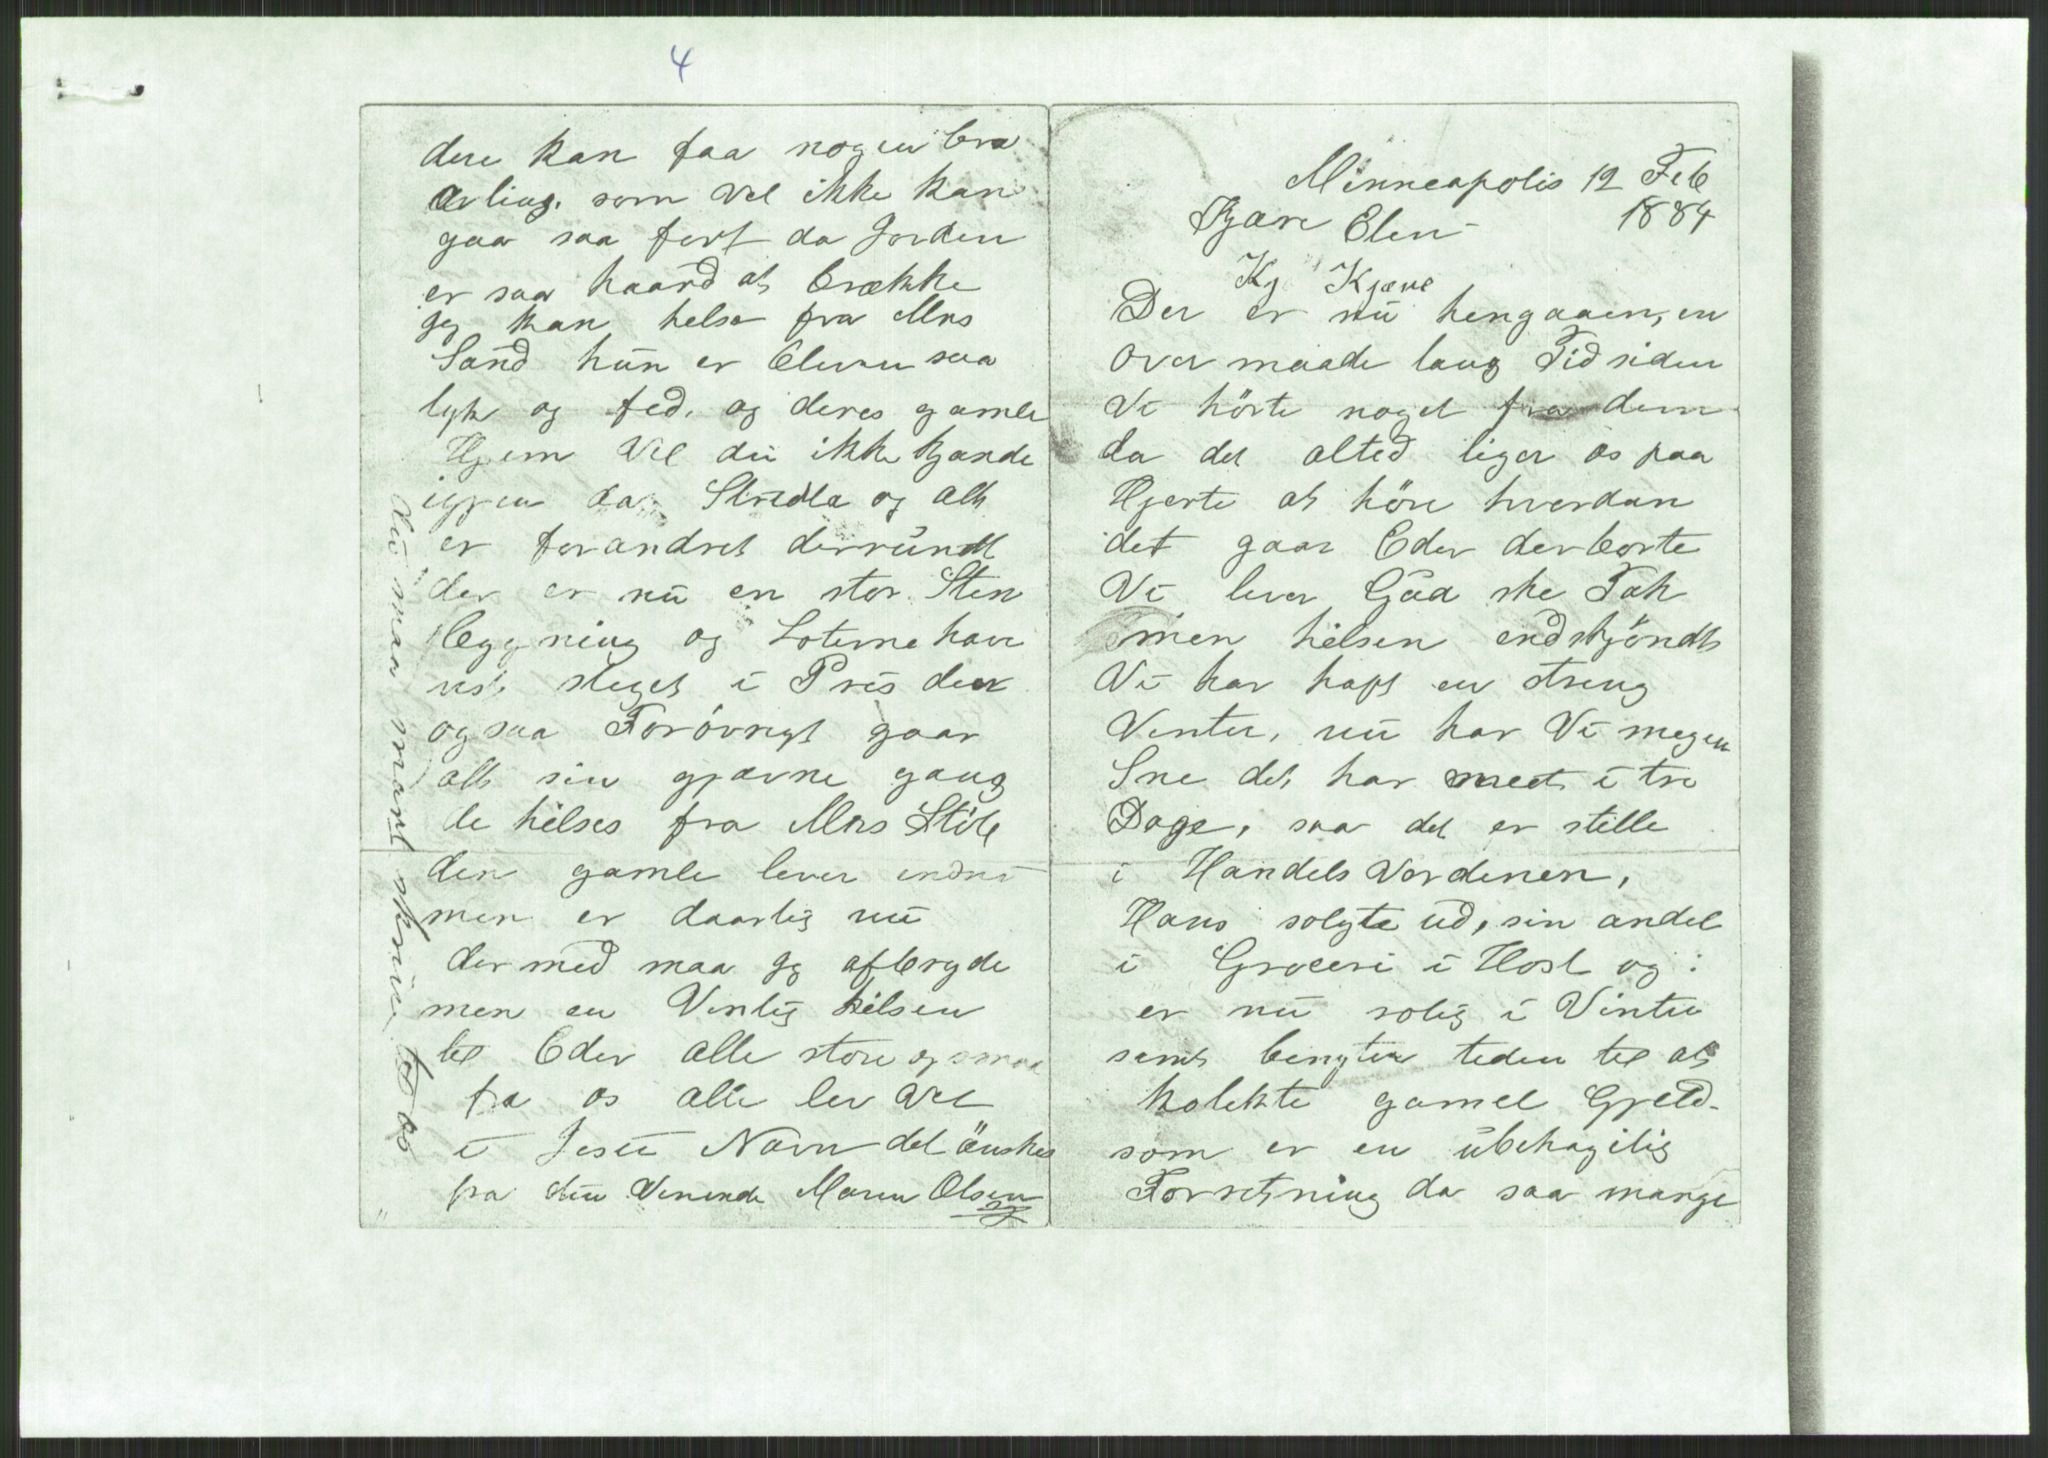 4
dere kan faa nogen bra
avling. som vel ikke kan
gaa saa fort da Jorden
er saa haard at brække
jeg kan helse fra Mrs
Sand hun er bleven saa
tyk og fed. og deres gamle
Hjem vil du ikke kjænde
igjen da Stredta og alt
er forandret derrundt
der er nu en stor Sten
bygning og Loterne have
vist steget i Pris der
ogsaa Forövrigt gaar
alt sin gjævne gang
de hilses fra Mrs
den gamle lever endnu
men er daarlig nu
dermed maa jeg afbryde
men en Venlig hilsen
til Eder alle store og smaa
fra os alle lev vel
i Jesu Navn det önskes
fra din Veninde Maren Olsen
du maa snart skrive til os
Minneapolis 12 Feb
1884
Kjære Elen
Kj Kjære
Der er nu hengaaen, en
over maade lang Tid siden
Vi hörte noget fra dem
da det altid liger os paa
Hjerte at höre hvordan
det gaar Eder der borte
Vi lever Gud ske Tak
men helsen endskjöndt
Vi har hapt en streng
Venter, nu har Vi megen
Sne det har sneet i tre
Dage, saa det er stille
i Handels Verdenen,
Hans solgte ud, sin andel
i Groceri i Host og
er nu rolig i Vinter
samt benyter tiden til at
kolekte gamel Gjeld
som er en ubehagelig
Forretning da saa mange